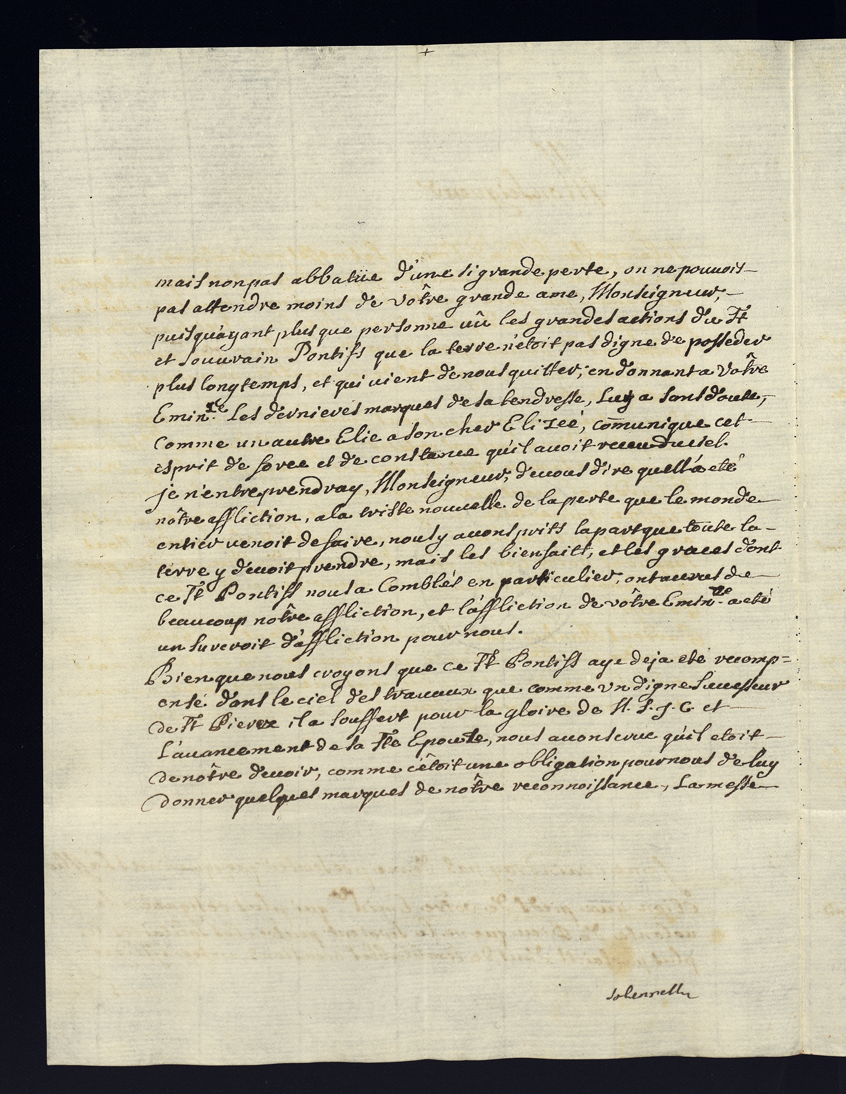 mais non pas abbatüe d'une si grande perte, on ne pouvoit
pas attendre moins de vôtre grande ame, Monseigneur,
puisqu'ayant plus que personne vû les grandes actions du St
et souvrain Pontifs que la terre n'étoit pas digne de posseder
plus longtemps, et qui vient de nous quitter, en donnant a vôtre
Emin.ce les dernieres marques de sa tendresse, Luy a sans doute,
comme un autre Elie a son cher Elizée, comunique cet
esprit de force et de constance qu'il avoit receu du ciel.
je n'entreprendray, Monseigneur, de vous dire quell'a eté
nôtre affliction, a la triste nouvelle de la perte que le monde
entier venoit de faire, nous y avons prits la part que toute la
terre y devoit prendre, mais les bienfaits, et les graces dont
ce St Pontifs nous a Comblés en particulier, ont accrus de
beaucoup nôtre affliction, et l'affliction de vôtre Emin.ce a eté
un surcroit d'affliction pour nous.
Bien que nous croyons que ce St Pontifs aye deja eté recomp=
ensé dans le ciel des travaux que comme un digne Successeur
de St Pierre il a souffert pour la gloire de N. S. J. C. et
L'avancement de sa Ste Epouse, nous avons crue qu'il etoit
de nôtre devoir, comme c'étoit une obligation pour nous de luy
donner quelques marques de nôtre reconnoissance, La messe
solennelle